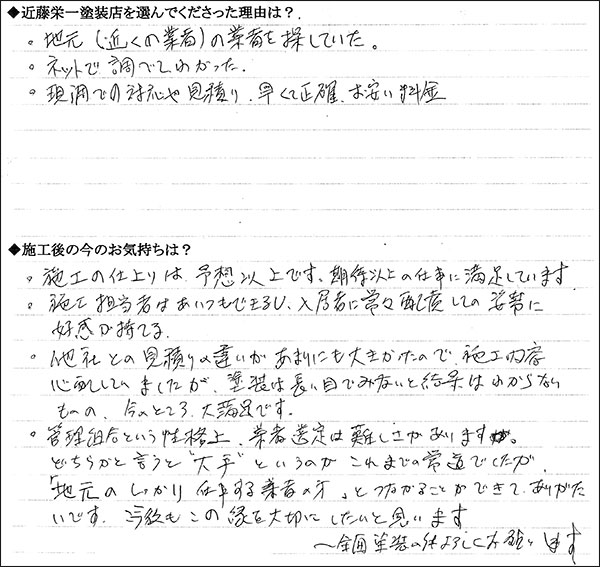 ◆近藤栄一塗装店を選んでくださった理由は?
・地元(近くの業者)の業者を探していた。
・ネットで調べてわかった.
・現調での対応や見積り、早くて正確、お安い料金
◆施工後の今のお気持ちは?
・施工の仕上りは、予想以上です、期待以上の仕事に満足しています
・施工担当者はあいさつもできるし、入居者に常々配慮しての姿勢に
好感が持てる.
・他社との見積りの違いがあまりにも大きかったので、施工内容
心配していましたが、塗装は長い目でみないと結果はわからない
ものの、今のところ、大満足です。
・管理組合という性格上、業者選定は難しさがあります。
どちらかと言うと"大手"というのがこれまでの常道でしたが、
「地元のしっかり仕事する業者の方」とつながることができて、ありがた
いです。今後もこの縁を大切にしたいと思います
〜全国塗装の件よろしくお願いします